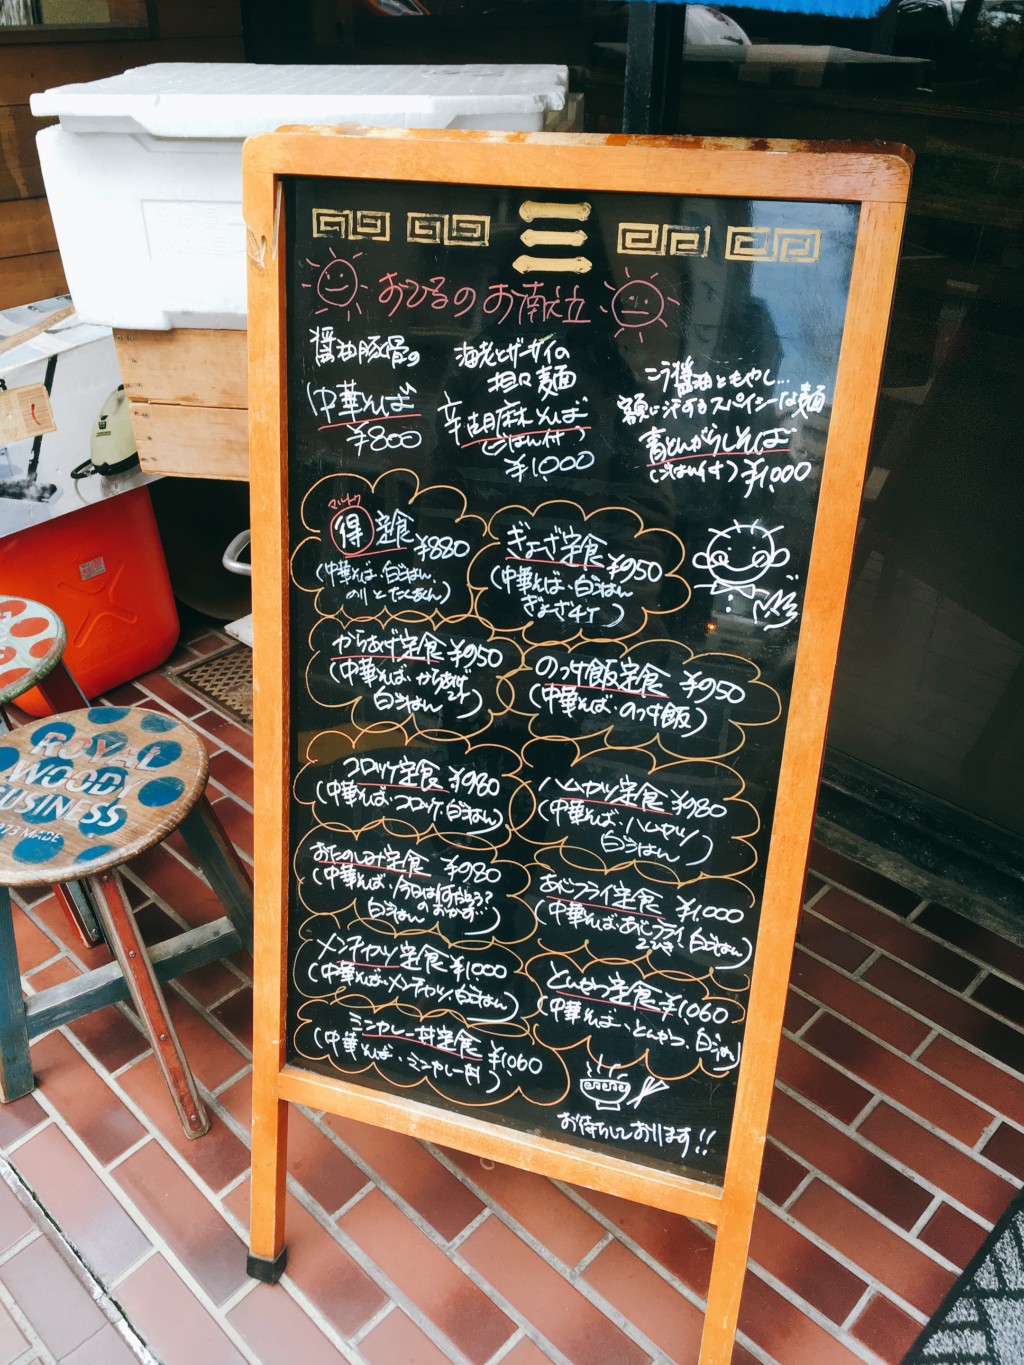 おひるのお献立
醤油豚骨の
中華そば
¥800
海老とザーサイの
担々麺
辛胡麻そば
(ごはん付)
¥1,000
こう醤油ともやし...
額に汗するスパイシーな麺
青とんがらしそば
(ごはん付) ¥1,000
マルトク
得 定食 ¥880
(中華そば、白ごはん、
のりとたくあん)
ぎょーざ定食 ¥950
(中華そば、白ごはん
ぎょーざ4ケ)
からあげ定食 ¥950
(中華そば、からあげ
白ごはん)
のっけ飯定食 ¥950
(中華そば、のっけ飯)
コロッケ定食 ¥980
(中華そば・コロッケ、白ごはん)
ハムカツ定食 ¥980
(中華そば、ハムカツ
白ごはん)
おたのしみ定食 ¥980
(中華そば、今日は何だろう?
のおかず...
白ごはん
あじフライ定食 ¥1,000
(中華そば、あじフライ、白ごはん)
2ひき
メンチカツ定食 ¥1,000
(中華そば、メンチカツ、白ごはん)
とんかつ定食 ¥1,060
(中華そば、とんかつ、白ごはん)
ミニカレー丼定食 ¥1,060
(中華そば、ミニカレー丼)
お待ちしております!!
ROYAL
WOODY
BUSINESS
MADE